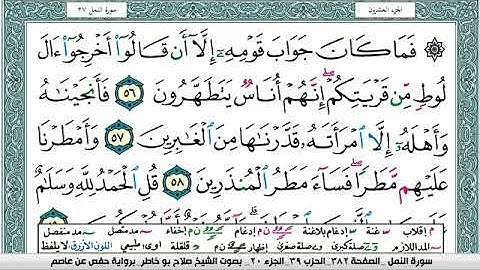 الجزء العشرين
سورة النمل ٢٧
۞ فَمَا كَانَ جَوَابَ قَوْمِهِۦٓ إِلَّآ أَن قَالُوٓا۟ أَخْرِجُوٓا۟ ءَالَ
لُوطٍ مِّن قَرْيَتِكُمْ ۖ إِنَّهُمْ أُنَاسٌ يَتَطَهَّرُونَ ٥٦ فَأَنجَيْنَٰهُ
وَأَهْلَهُۥٓ إِلَّا ٱمْرَأَتَهُۥ قَدَّرْنَٰهَا مِنَ ٱلْغَٰبِرِينَ ٥٧ وَأَمْطَرْنَا
عَلَيْهِم مَّطَرًا ۖ فَسَآءَ مَطَرُ ٱلْمُنذَرِينَ ٥٨ قُلِ ٱلْحَمْدُ لِلَّهِ وَسَلَٰمٌ
م إقلاب س غنة س إدغام بلاغنة إدغام إخفاء مد متصل مد منفصل
المد اللازم صلة كبرى إظهار قلقلة أوى، طبيعي اللون الأزرق لا يلفظ
سورة النمل _ الصفحة ٣٨٢_ الحزب ٣٩_ الجزء ٢٠ _ بصوت الشيخ صلاح بو خاطر_برواية حفص عن عاصم